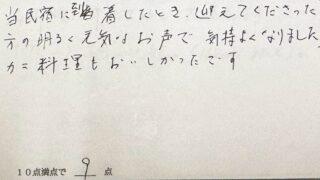 当民宿に到着したとき、迎えてくださった
方の明るく元気なお声で気持よくなりました。
カニ料理もおいしかったです
10点満点で 9 点